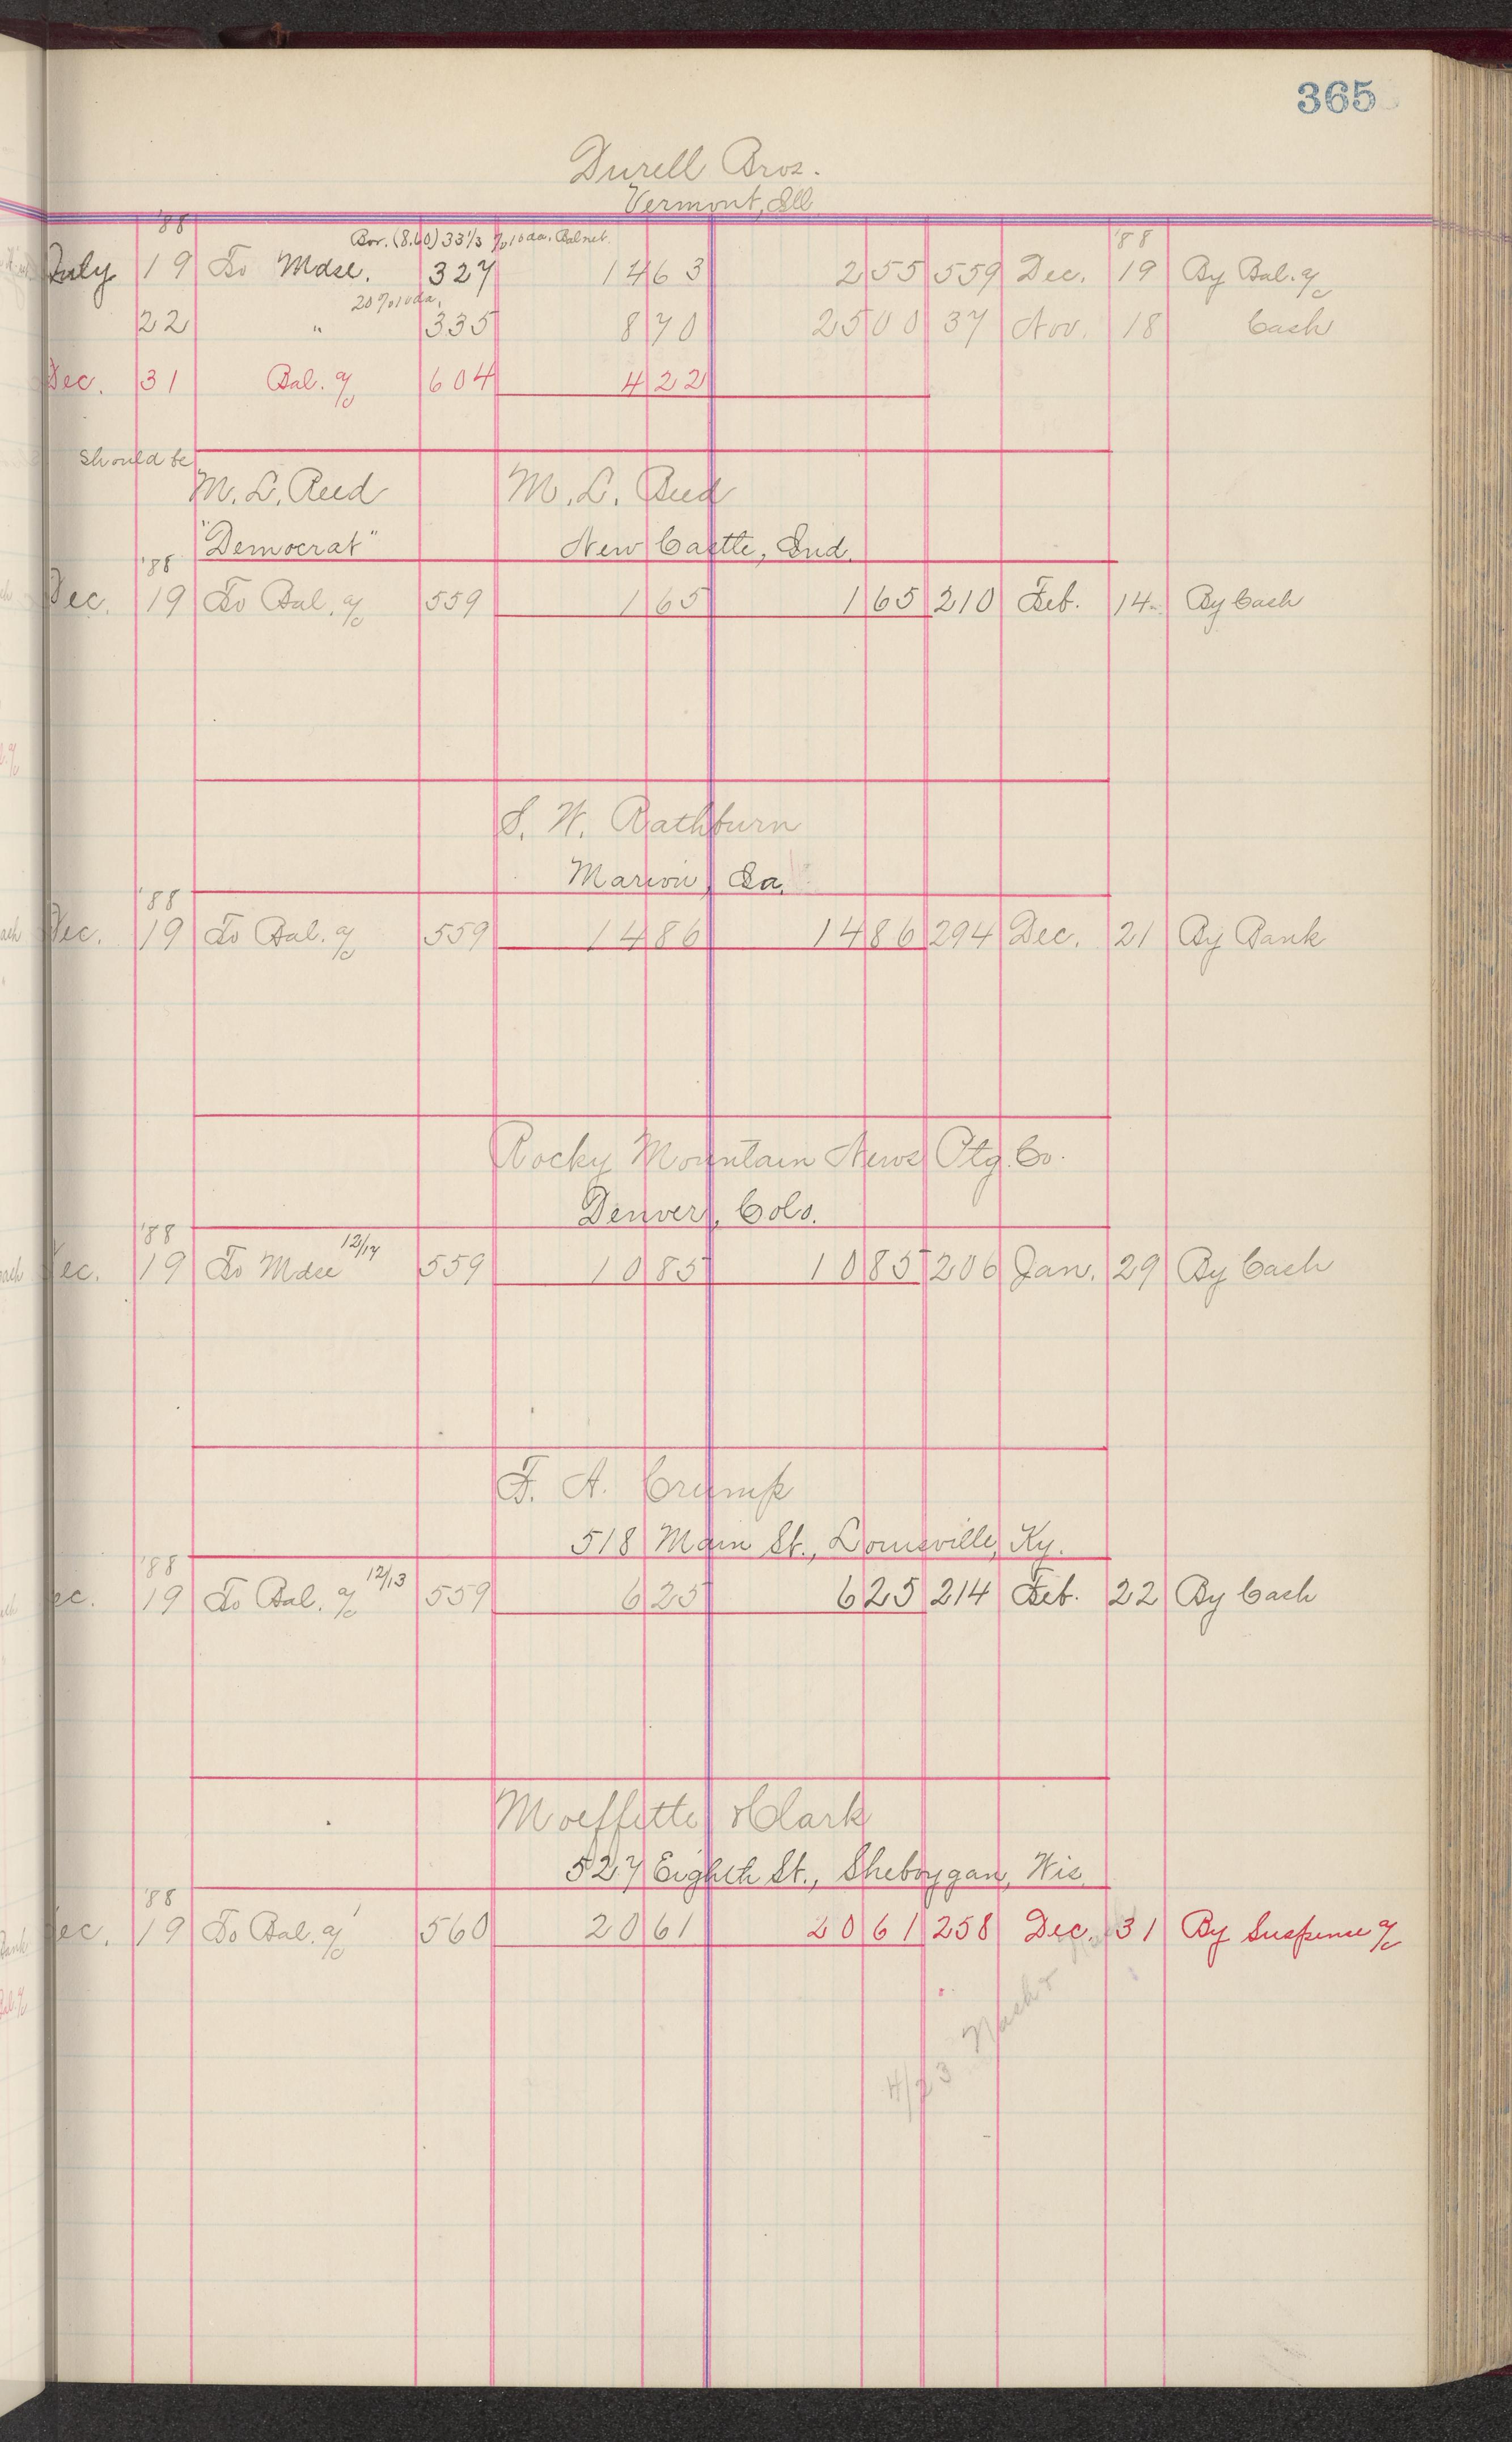 365
Durell Bros.
Vermont, Ill
'88 Bor. (8.60) 33 1/3 % 10 da. Bal net. '88
July 19 To Mdse. 327 14 63 2 55 559 Dec. 19 By Bal. a/c
20% 10 da.
22 " 335 8 70 25 00 37 Nov. 18 Cash
Dec. 31 Bal. a/c 604 4 22
Should be
M. L. Reed M. L. Reed
"Democrat" New Castle, Ind.
'88
Dec. 19 To Bal. a/c 559 1 65 1 65 210 Feb. 14 By Cash
S. W. Rathburn
Marion, Ia.
'88
Dec. 19 To Bal. a/c 559 14 86 14 86 294 Dec. 21 By Bank
Rocky Mountain News Ptg. Co.
Denver, Colo.
'88
Dec. 19 To Mdse 12/17 559 10 85 10 85 206 Jan. 29 By Cash
F. A. Crump
518 Main St., Louisville, Ky.
'88
ec. 19 To Bal. a/c 12/13 559 6 25 6 25 214 Feb. 22 By Cash
Moeffette & Clark
527 Eighth St., Sheboygan, Wis.
'88
Dec. 19 To Bal. a/c 560 20 61 20 61 258 Dec. 31 By Suspense a/c
4/23